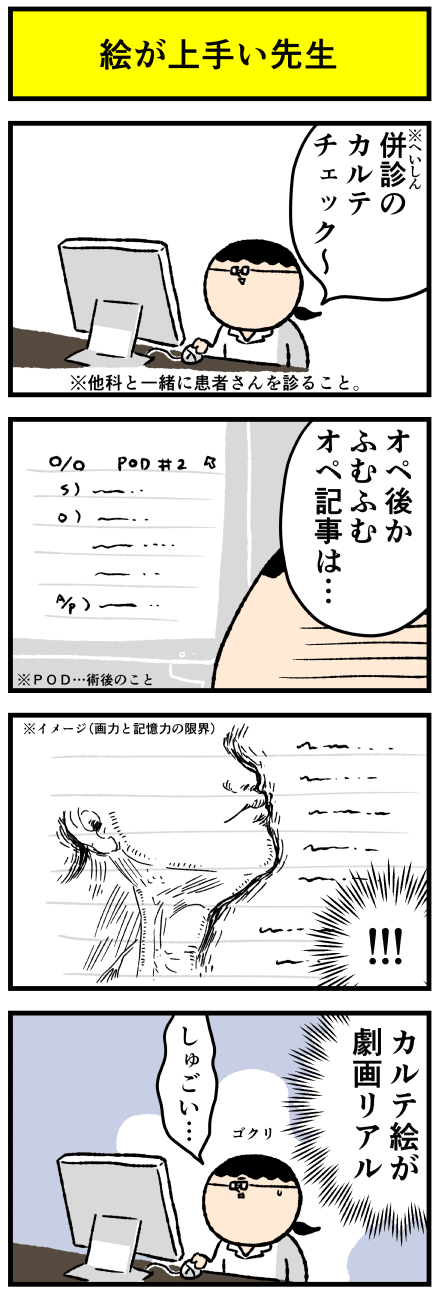 絵が上手い先生
※へいしん
併診の
カルテ
チェック～
※他科と一緒に患者さんを診ること。
オペ後か
ふむふむ
オペ記事は…
○/○ POD #2
S)
O)
A/P)
※POD…術後のこと
※イメージ(画力と記憶力の限界)
!!!
カルテ絵が
劇画リアル
しゅごい…
ゴクリ